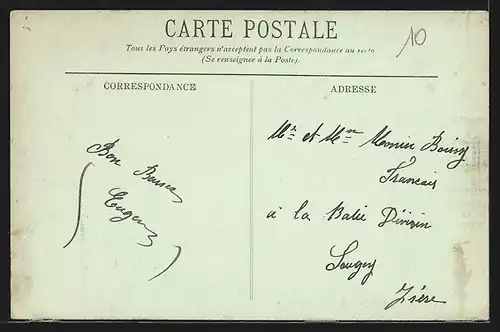 CARTE POSTALE
Tous les Pays étrangers n'acceptent pas la Correspondance au recto
(Se renseigner à la Poste).
10
CORRESPONDANCE
ADRESSE
Bon Baisers
Eugen
Mr et Mme Monin Boissy
Francais
à la Balie Divisin
Isère